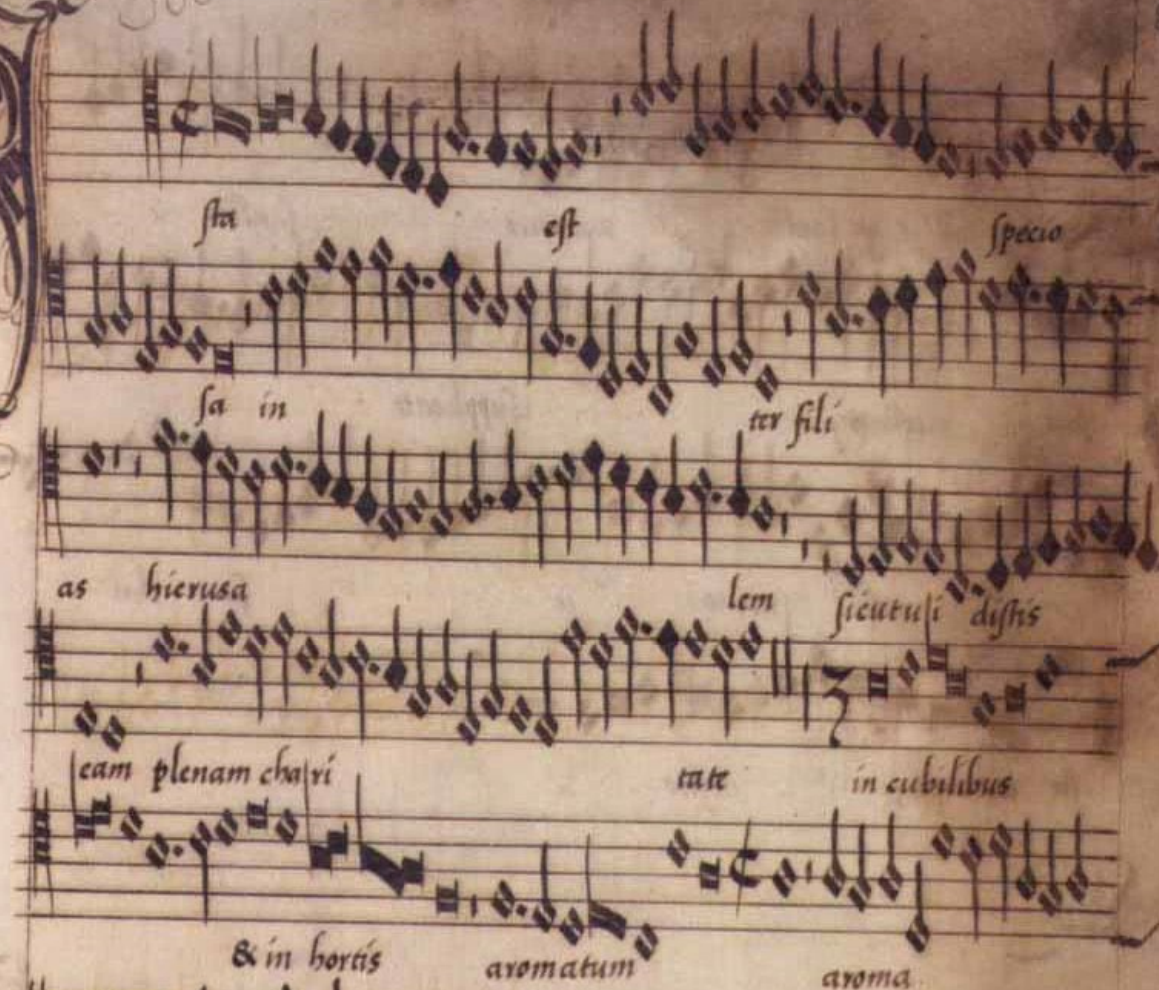 sta est specio
sa in ter fili
as hierusa lem sicut ui distis
eam plenam cha ri tate in cubilibus
& in hortis aromatum aroma